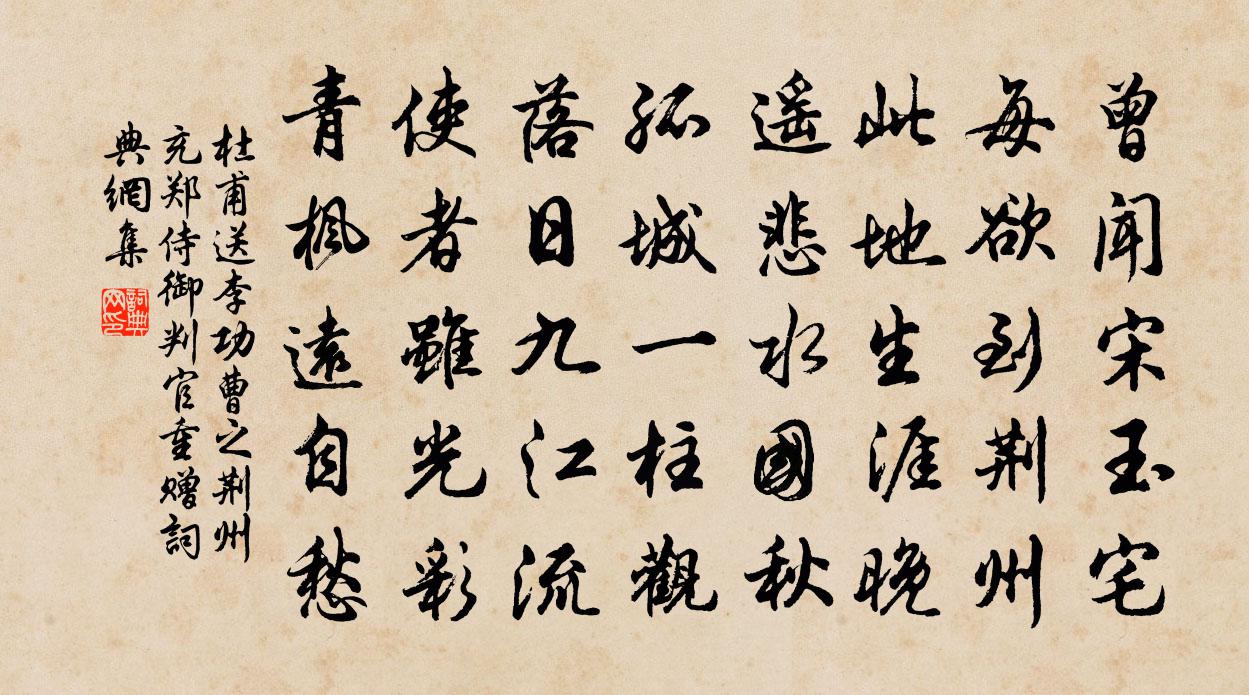 曾聞宋玉宅
每欲到荆州
此地生涯晚
遥悲水國秋
孤城一柱觀
落日九江流
使者雖光彩
青楓遠自愁
杜甫送李功曹之荆州
充郑侍御判官重赠詞
典網集
詞典
网印